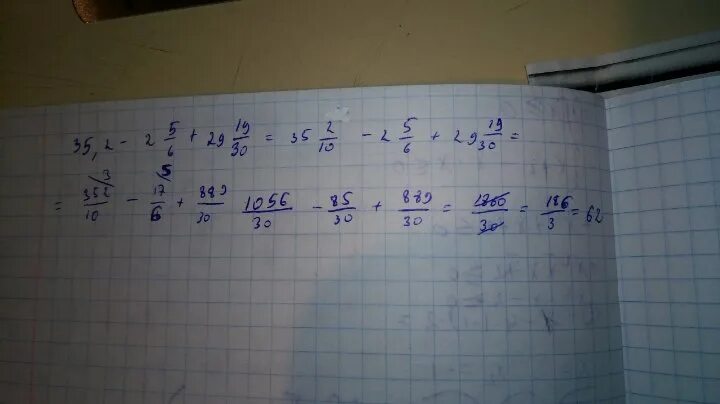 35,2 - 2 5/6 + 29 19/30 = 35 2/10 - 2 5/6 + 29 19/30 =
= 352/10 - 17/6 + 889/30 1056/30 - 85/30 + 889/30 = 1860/30 = 186/3 = 62